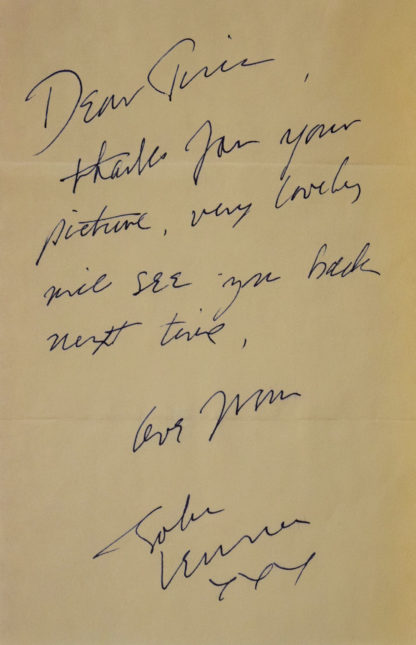 Dear Tina,
thanks for your
picture, very lovely
will see you back
next time,
love from
John
Lennon
xxx